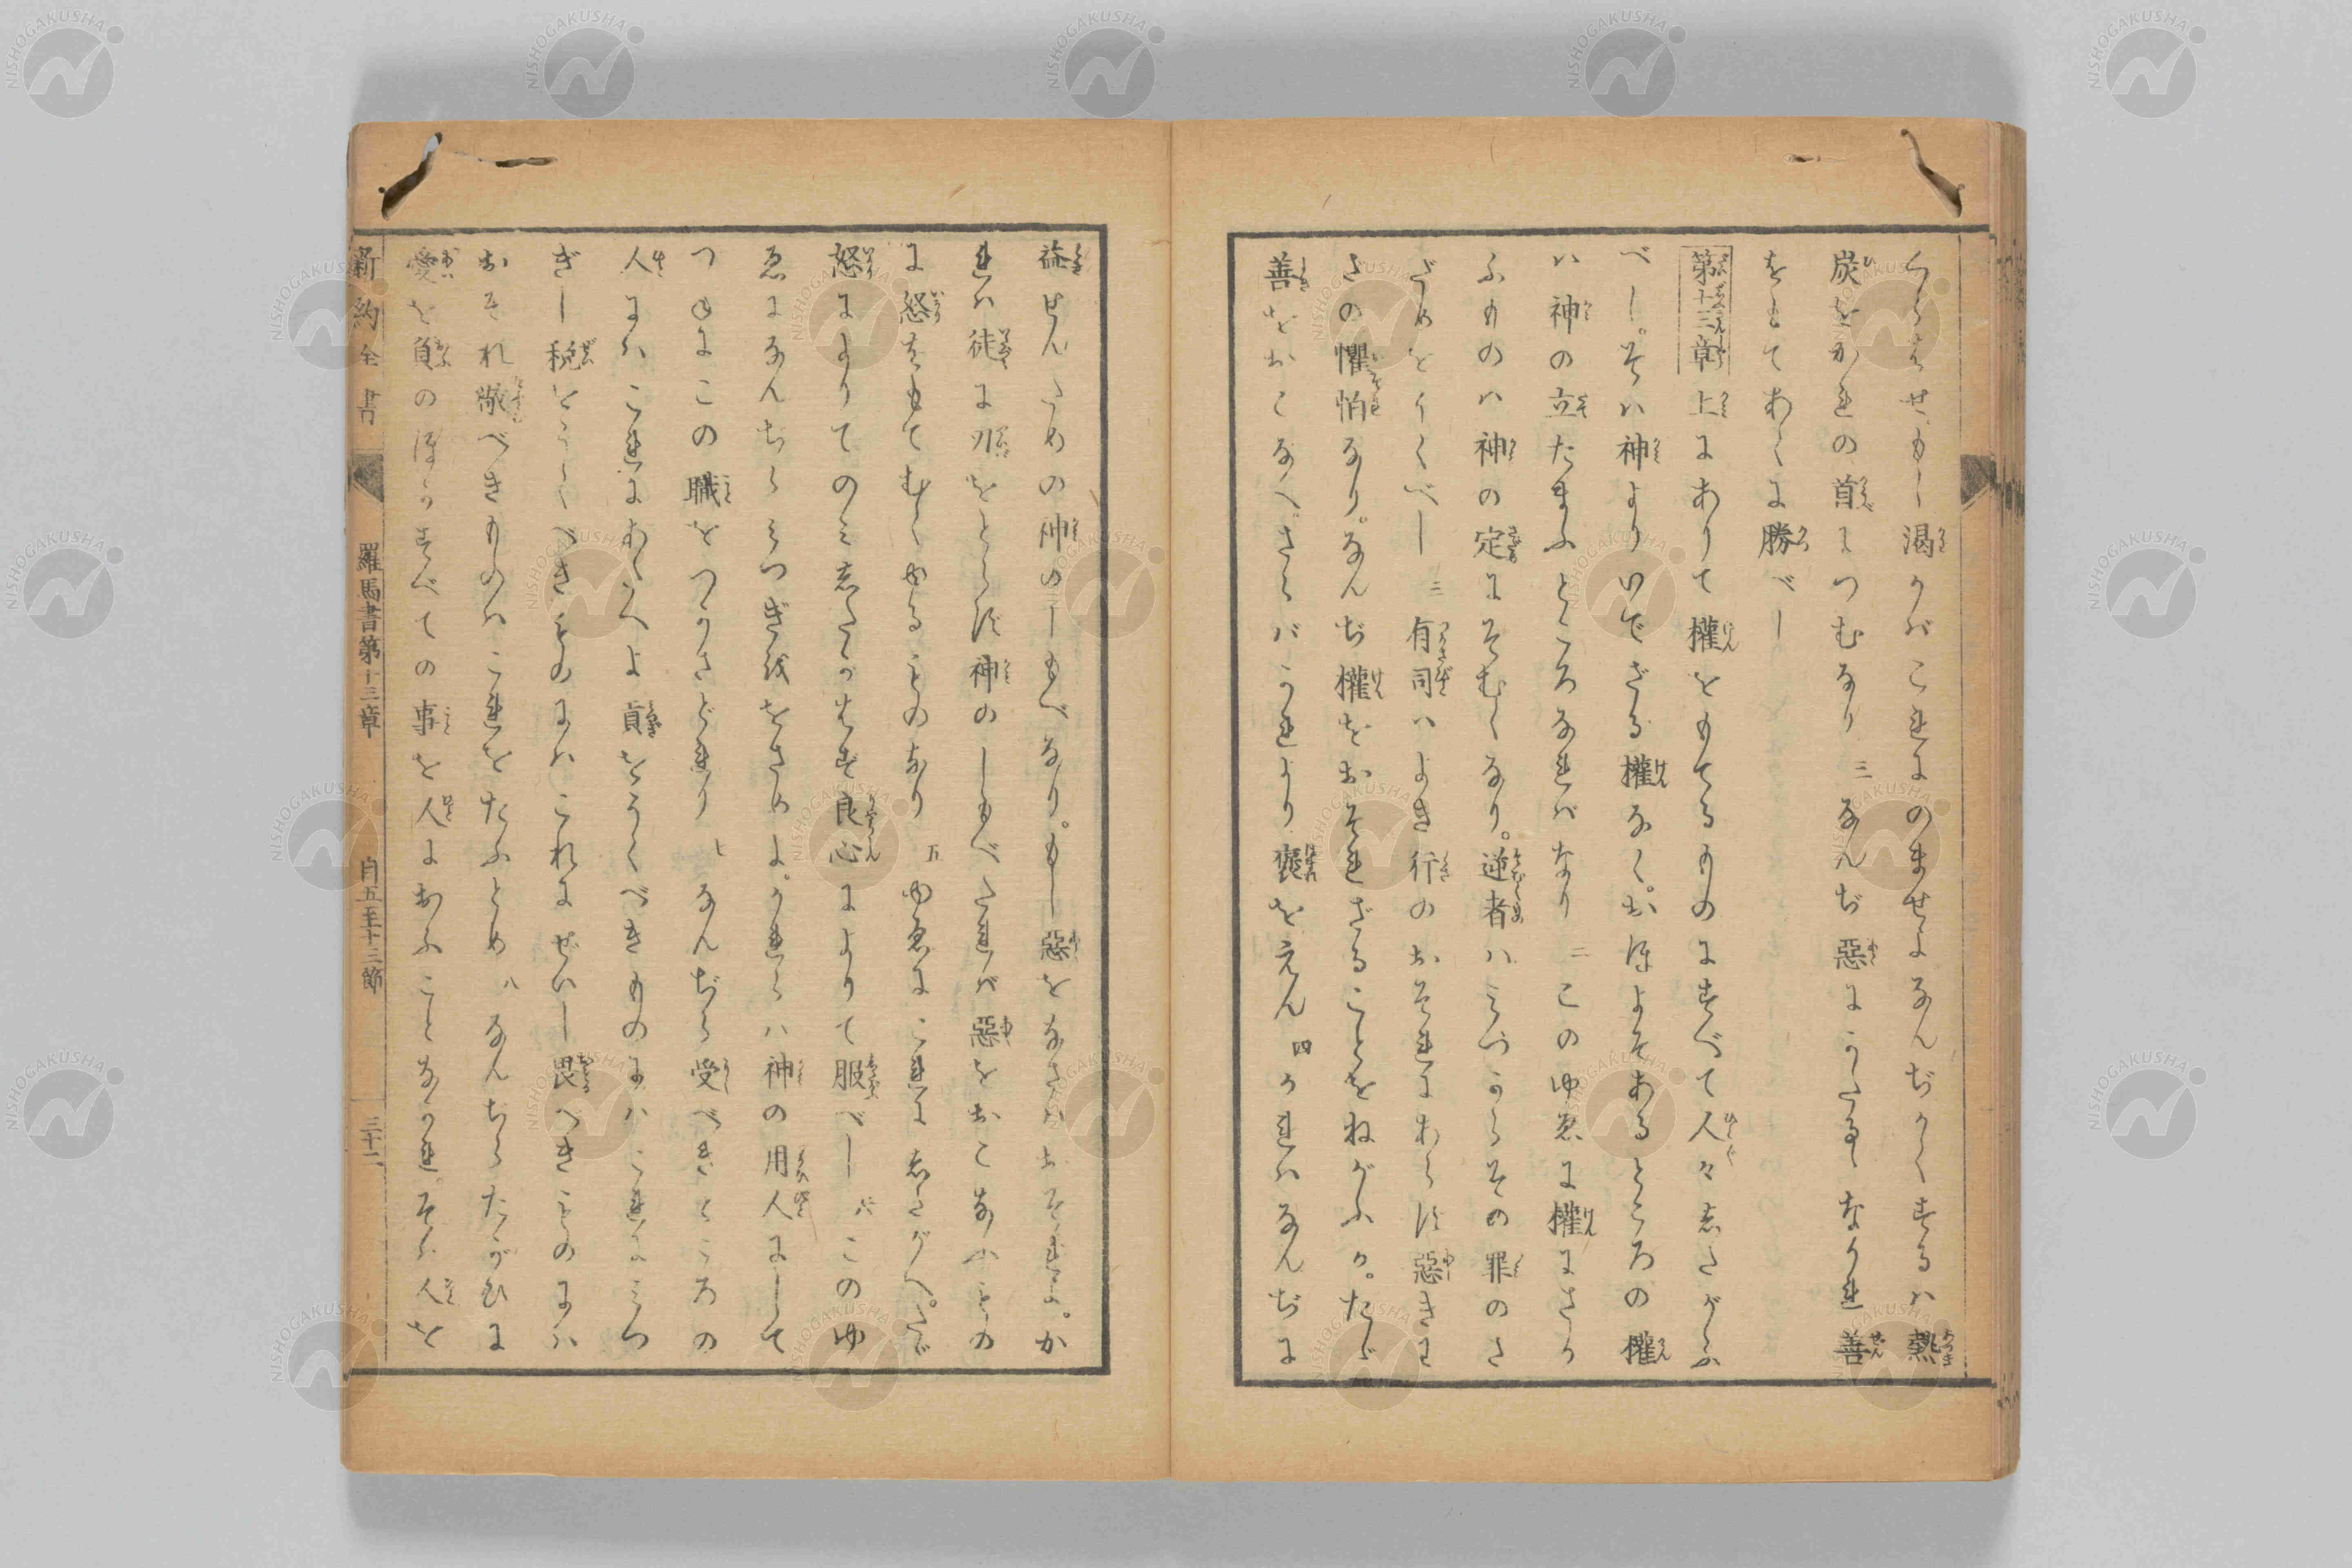 くらはせもし渇かバこれにのませよなんぢかくするハ熱
炭をかれの首につむなり 三 なんぢ惡にうたるゝなかれ善
をもてあくに勝べし
第十三章 上にありて權をもてるものにすべて人々したがふ
べし。そハ神よりいでざる權なく。おほよそあるところの權
ハ神の立たまふところなれバなり 二 このゆゑに權にさか
ふものハ神の定にそむくなり。逆者ハみづからその罪のさ
だめをうくべし 三 有司ハよき行のおそれにあらず惡きに
さの懼怕なり。なんぢ權をおそれざることをねがふか。たゞ
善をおこなへ。さらバかれより褒をえん 四 かれハなんぢに
益せんための神のしもべなり。もし惡をなさバおそれよ。か
れハ徒に刃をとらず神のしもべたれバ惡をおこなふもの
に怒をもてむくゆるものなり 五 ゆゑにこれにしたがへ。たゞ
怒によりてのみしたがはず良心によりて服べし 六 このゆ
ゑになんぢらみつぎをおさめよ。かれらハ神の用人にして
つねにこの職をつかさどれり 七 なんぢら受べきところの
人にハこれにあたへよ貢をうくべきものにハこれにみつ
ぎし税をうくべきものにハこれにぜいし畏べきものにハ
おそれ敬べきものハこれをたふとめ 八 なんぢらたがひに
愛を負のほかすべての事を人におふことなかれ。そハ人を
新約全書 羅馬書第十三章 自五至十三節 三十二